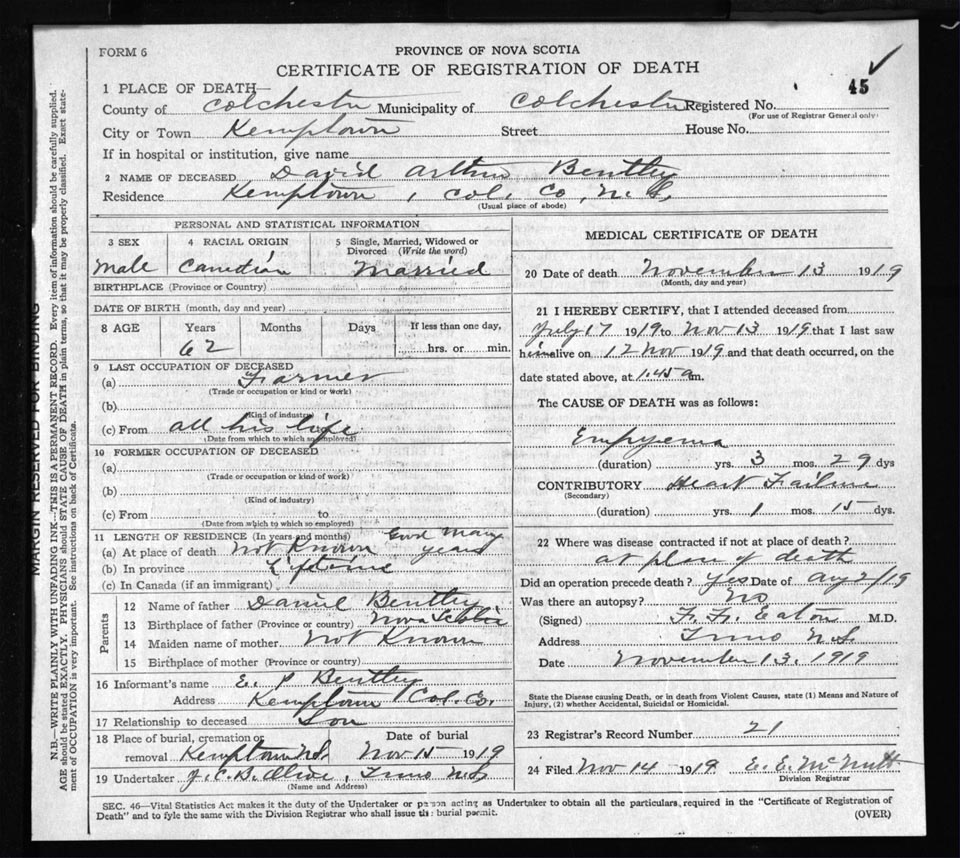 FORM 6
PROVINCE OF NOVA SCOTIA
CERTIFICATE OF REGISTRATION OF DEATH
45
1 PLACE OF DEATH
County of Colchester Municipality of Colchester Registered No.
(For use of Registrar General only)
City or Town Kemptown Street House No.
If in hospital or institution, give name
2 NAME OF DECEASED David Arthur Bentley
Residence Kemptown, Col. Co, N.S.
(Usual place of abode)
PERSONAL AND STATISTICAL INFORMATION
3 SEX 4 RACIAL ORIGIN 5 Single, Married, Widowed or Divorced (Write the word)
Male Canadian Married
BIRTHPLACE (Province or Country)
DATE OF BIRTH (month, day and year)
8 AGE Years Months Days If less than one day,
62 hrs. or min.
9 LAST OCCUPATION OF DECEASED
(a) Farmer
(Trade or occupation or kind or work)
(b)
(Kind of industry)
(c) From all his life
(Date from which to which so employed)
10 FORMER OCCUPATION OF DECEASED
(a)
(Trade or occupation or kind of work)
(b)
(Kind of industry)
(c) From to
(Date from which to which so employed)
11 LENGTH OF RESIDENCE (In years and months)
(a) At place of death Not Known Many years
(b) In province Lifetime
(c) In Canada (if an immigrant)
Parents
12 Name of father Daniel Bentley
13 Birthplace of father (Province or country) Nova Scotia
14 Maiden name of mother Not Known
15 Birthplace of mother (Province or country)
16 Informant's name E. P Bentley
Address Kemptown Col. Co.
17 Relationship to deceased Son
18 Place of burial, cremation or removal Kemptown N.S. Date of burial Nov 15 1919
19 Undertaker J. C. B. Olive, Truro N.S
(Name and Address)
MEDICAL CERTIFICATE OF DEATH
20 Date of death November 13 1919
(Month, day and year)
21 I HEREBY CERTIFY, that I attended deceased from
July 17 1919 to Nov 13 1919 that I last saw
him alive on 12 Nov 1919 and that death occurred, on the
date stated above, at 1.45 a m.
The CAUSE OF DEATH was as follows:
Empyema
(duration) yrs. 3 mos. 29 dys
CONTRIBUTORY Heart Failure
(Secondary)
(duration) yrs. 1 mos. 15 dys.
22 Where was disease contracted if not at place of death?
at place of death
Did an operation precede death? Yes Date of Aug 2/19
Was there an autopsy? No
(Signed) F. F. Eaton M.D.
Address Truro N.S
Date November 13. 1919
State the Disease causing Death, or in death from Violent Causes, state (1) Means and Nature of
Injury, (2) whether Accidental, Suicidal or Homicidal.
23 Registrar's Record Number 21
24 Filed Nov 14 1919 E. E. McNutt
Division Registrar
SEC. 46—Vital Statistics Act makes it the duty of the Undertaker or person acting as Undertaker to obtain all the particulars required in the "Certificate of Registration of
Death" and to fyle the same with the Division Registrar who shall issue the burial permit.
(OVER)
MARGIN RESERVED FOR BINDING
N.B.—WRITE PLAINLY WITH UNFADING INK—THIS IS A PERMANENT RECORD. Every item of information should be carefully supplied.
AGE should be stated EXACTLY. PHYSICIANS should STATE CAUSE OF DEATH in plain terms, so that it may be properly classified. Exact state-
ment of OCCUPATION is very important. See instructions on back of Certificate.